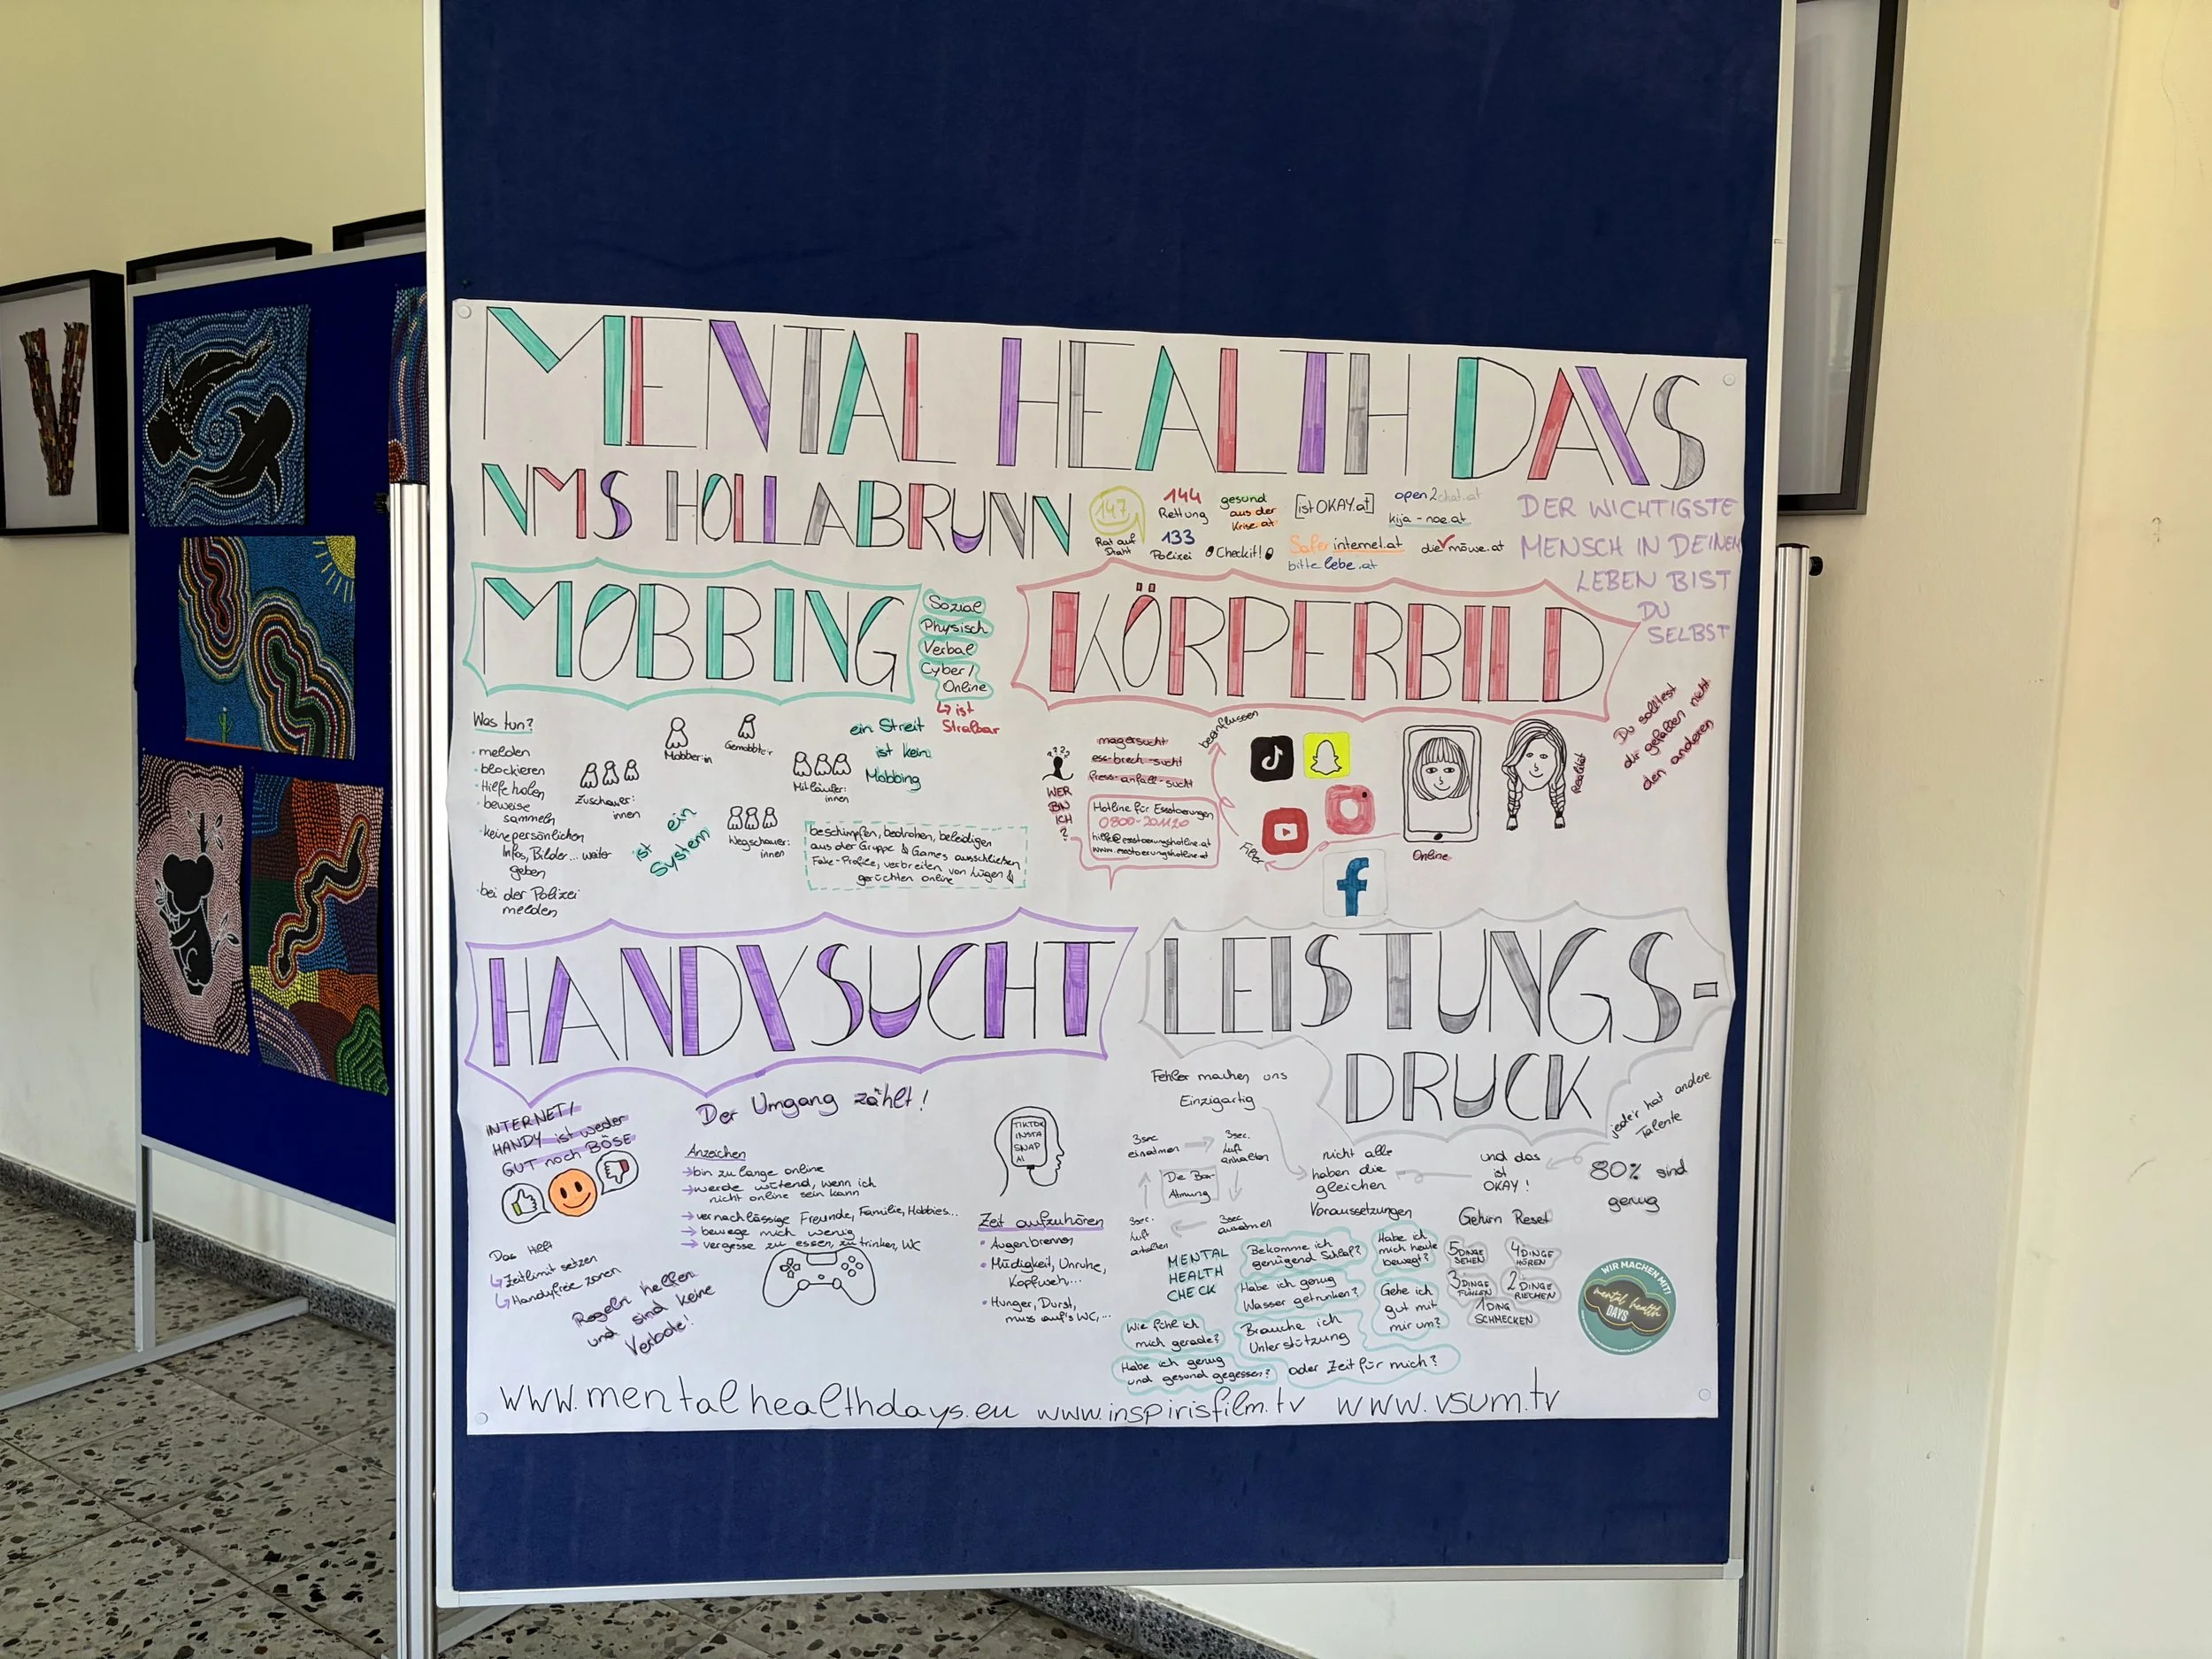 MENTAL HEALTH DAYS
NMS HOLLABRUNN
147
Rat auf
Draht
144
Rettung
133
Polizei
gesund
aus der
Krise.at
Checkit!
[istOKAY.at]
open2chat.at
kija-noe.at
Saferinternet.at
die möwe.at
bittelebe.at
DER WICHTIGSTE
MENSCH IN DEINEM
LEBEN BIST
DU
SELBST
MOBBING
Sozial
Physisch
Verbal
Cyber/
Online
↳ ist
Strafbar
Was tun?
· melden
· blockieren
· Hilfe holen
· beweise
sammeln
· keine persönlichen
Infos, Bilder... weiter
geben
· bei der Polizei
melden
Zuschauer:
innen
Mobber:in
Gemobbte:r
Mitläufer:
innen
Wegschauer:
innen
ein Streit
ist kein
Mobbing
ist ein
System
beschimpfen, bedrohen, beleidigen
aus der Gruppe & Games ausschließen
Fake-Profile, verbreiten von Lügen &
gerüchten online
KÖRPERBILD
???
WER
BIN
ICH
?
magersucht
ess-brech-sucht
fress-anfall-sucht
Hotline für Essstörungen
0800-201120
hilfe@essstoerungshotline.at
www.essstoerungshotline.at
beeinflussen
Filter
Online
Realität
Du solltest
dir gefallen nicht
den anderen
HANDYSUCHT
INTERNET/
HANDY ist weder
GUT noch BÖSE
Der Umgang zählt!
Anzeichen
→ bin zu lange online
→ werde wütend, wenn ich
nicht online sein kann
→ vernachlässige Freunde, Familie, Hobbies...
→ bewege mich wenig
→ vergesse zu essen, zu trinken, WC
Das hilft
↳ Zeitlimit setzen
↳ Handyfreie zonen
Regeln helfen
und sind keine
Verbote!
TIKTOK
INSTA
SNAP
AI
Zeit aufzuhören
• Augenbrennen
• Müdigkeit, Unruhe,
Kopfweh,...
• Hunger, Durst,
muss auf's WC,...
LEISTUNGS-
DRUCK
Fehler machen uns
Einzigartig
nicht alle
haben die
gleichen
Voraussetzungen
und das
ist
OKAY!
jede:r hat andere
Talente
80% sind
genug
3sec
einatmen
3sec.
Luft
anhalten
3sec
ausatmen
3sec.
Luft
anhalten
Die Box-
Atmung
MENTAL
HEALTH
CHECK
Bekomme ich
genügend Schlaf?
Habe ich
mich heute
bewegt?
Habe ich genug
Wasser getrunken?
Gehe ich
gut mit
mir um?
Wie fühle ich
mich gerade?
Brauche ich
Unterstützung
oder Zeit für mich?
Habe ich genug
und gesund gegessen?
Gehirn Reset
5 DINGE
SEHEN
4 DINGE
HÖREN
3 DINGE
FÜHLEN
2 DINGE
RIECHEN
1 DING
SCHMECKEN
WIR MACHEN MIT!
mental health
DAYS
www.mentalhealthdays.eu www.inspirisfilm.tv www.vsum.tv